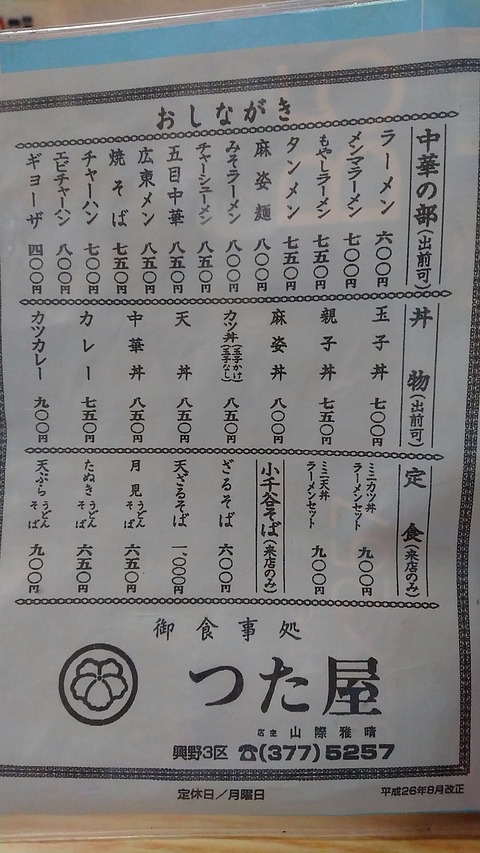 おしながき
中華の部(出前可)
ラーメン 六〇〇円
メンマラーメン 七〇〇円
もやしラーメン 七五〇円
タンメン 七五〇円
麻婆麺 八〇〇円
みそラーメン 八〇〇円
チャーシューメン 八五〇円
五目中華 八五〇円
広東メン 八五〇円
焼そば 七五〇円
チャーハン 七〇〇円
エビチャーハン 八〇〇円
ギョーザ 四〇〇円
丼物(出前可)
玉子丼 七〇〇円
親子丼 七五〇円
麻婆丼 八〇〇円
カツ丼(玉子かけ 玉子なし) 八五〇円
天丼 八五〇円
中華丼 八五〇円
カレー 七五〇円
カツカレー 九〇〇円
定食(来店のみ)
ミニカツ丼 ラーメンセット 九〇〇円
ミニ天丼 ラーメンセット 九〇〇円
小千谷そば(来店のみ)
ざるそば 六〇〇円
天ざるそば 一、〇〇〇円
月見 うどん そば 六五〇円
たぬき うどん そば 六五〇円
天ぷら うどん そば 九〇〇円
御食事処
つた屋
店主 山際雅晴
興野3区 ☎(377)5257
定休日/月曜日
平成26年8月改正